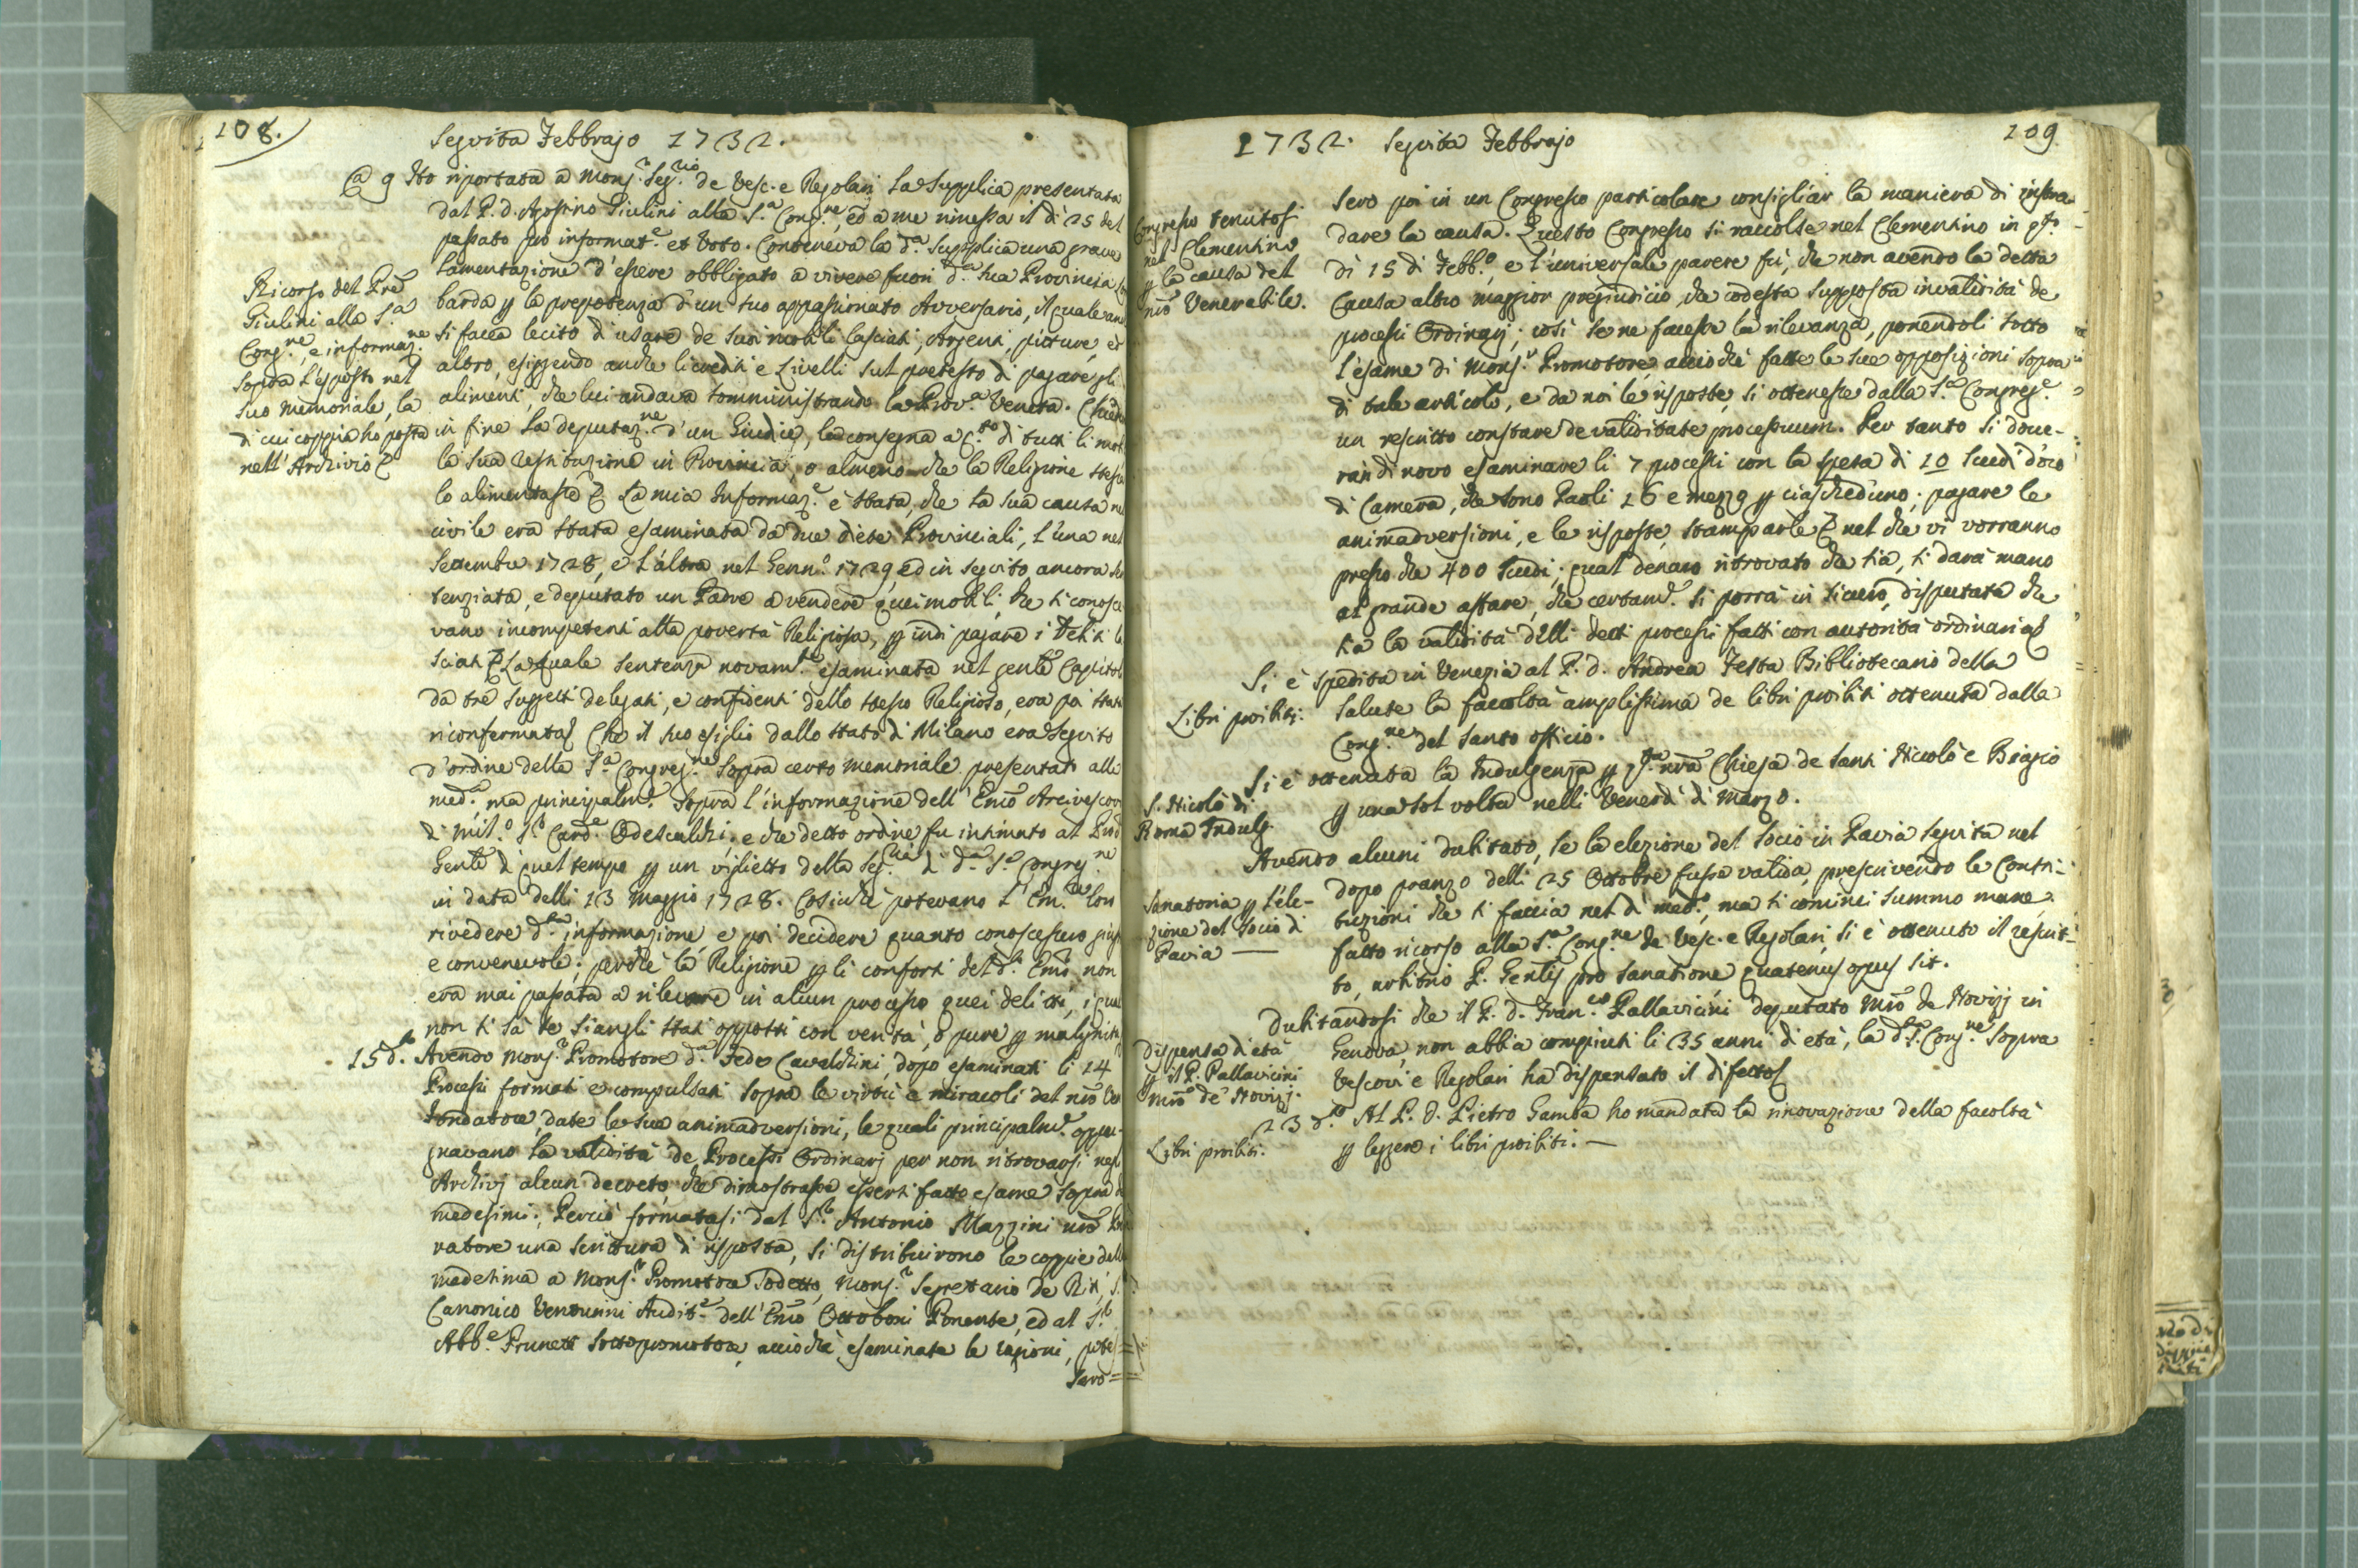 108.
Seguita Febbrajo 1732.
@ 9 Ho riportata a Mons.r Seg.rio de Vesc. e Regolari la Supplica presentata
dal P. d. Agostino Giulini alla S.a Cong.ne, ed a me rimessa il di 25 del
passato pro informat.e et Voto. Conteneva la d.a Supplica una grave
lamentazione d'essere obbligato a vivere fuori d.a sua Provincia
barda p la prepotenza d'un suo appassionato Avversario, il quale
si facea lecito d'usare de suoi mobili lasciati, Argenti, pitture, et
altro, esiggendo anche li crediti e Livelli sul pretesto di pagare gli
alimenti, che lui andava somministrando la Prov.a Veneta.
in fine la deputaz.ne d'un Giudice, la consegna a C.to di tutti li
la sua restituzione in Provincia, o almeno che la Religione stessa
lo alimentasse &. La mia Informaz.e è stata, che la sua causa
civile era stata esaminata da due diete Provinciali, l'una nel
Settembre 1728, e l'altra nel Genn.o 1729, ed in seguito ancora
tenziata, e deputato un Padre a vendere quei mobili, che si conosce
vano incompetenti alla povertà Religiosa, p indi pagare i debiti
sciati & La quale sentenza novam.te esaminata nel gentle Capitol
da tre suggetti delegati, e confidenti dello stesso Religioso, era poi stata
riconfermata. Che il suo esiglio dallo stato di Milano era seguito
d'ordine della S.a Congreg.ne sopra certo memoriale presentato alla
med.a, ma principalm.te sopra l'informazione dell'Emo Arcivescov
di Mil.o S.r Card.e Odescalchi; e che detto ordine fu intimato al
Genle di quel tempo p un viglietto della Seg.ria di d.a S.a Congreg.ne
in data delli 13 Maggio 1728. Cosicchè potevano l'Em.ze Lon
rivedere d.ta informazione, e poi decidere quanto conoscessero
e convenevole; perchè la Religione p li conforti del d.o Emo non
era mai passata a rilevare in alcun processo quei delitti, i
non si sà se siangli stati opposti con verità, o pure p malignità
Ricorso del Pre
Giulini alla S.a
Cong.ne, e informaz.ne
sopra l'esposto nel
suo memoriale, la
di cui coppia ho posta
nell'Archivio &
15 d.o Avendo Mons.r Promotore d.a Fede Cavalchini, dopo esaminati li 14
Processi formati e compulsati sopra le virtù e miracoli del nro Ven
Fondatore, date le sue animadversioni, le quali principalm.te oppu-
gnavano la validità de Processi Ordinarj per non ritrovarsi negl
Archivj alcun decreto, che dimostrasse essersi fatto esame sopra
medesimi; Perciò formatasi dal S.r Antonio Mazzini nro
ratore una scrittura di risposta, si distribuirono le coppie
medesima a Mons.r Promotore sodetto, Mons.r Segretario de Riti, S.
Canonico Venturini Audit.e dell'Emo Ottoboni Ponente, ed al S.r
Abb.e Prunetti Sottopromotore, acciochè esaminate le ragioni, potes
sero =
1732. Seguita Febbrajo
109
sero poi in un Congresso particolare consigliar la maniera di instra-
dare la causa. Questo Congresso si raccolse nel Clementino in q.to
dì 15 di Febb.o, e l'universale parere fù, che non avendo la detta
Causa altro maggior pregiudicio, che codesta supposta invalidità de
processi Ordinarj; così se ne facesse la rilevanza, ponendoli sotto
l'esame di Mons.r Promotore, acciochè fatte le sue opposizioni sopra
di tale articolo, e da noi le risposte, si ottenesse dalla S.a Congreg.e
un rescritto constare de validitate processuum. Per tanto si dove-
ran di novo esaminare li 7 processi con la spesa di 10 scudi d'oro
di Camera, che sono Paoli 16 e mezzo p ciascheduno; pagare le
animadversioni, e le risposte, stamparle & nel che vi vorranno
presso che 400 scudi; qual denaro ritrovato che sia, si darà mano
al grande affare, che certam.e si porrà in sicuro, disputata che
sia la validità delli detti processi fatti con autorità ordinaria
Congresso tenutosi
nel Clementino
p la causa del
nro Venerabile.
Si è spedita in Venezia al P. d. Andrea Testa Bibliotecario della
Salute la facoltà amplissima de libri proibiti ottenuta dalla
Cong.ne del Santo officio.
Libri proibiti.
Si è ottenuta la Indulgenza p q.ta nra Chiesa de Santi Niccolò e Biagio
p una sol volta nelli Venerdì di Marzo.
S. Nicolò di
Roma Indulg.
Avendo alcuni dubitato, se la elezione del Socio in Pavia seguita nel
dopo pranzo delli 25 Ottobre fusse valida, prescrivendo le Consti-
tuzioni che si faccia nel dì med.o, ma si cominci summo mane,
fatto ricorso alla S.a Cong.ne de Vesc. e Regolari, si è ottenuto il rescrit-
to, arbitrio P. Gentlis pro sanatione, quatenus opus sit.
Sanatoria p l'ele-
zione del Socio di
Pavia —
Dubitandosi che il P. D. Fran.co Pallavicini deputato Mro de Novizj in
Genova, non abbia compiuti li 35 anni di età, la d.a S. Cong.ne sopra
Vescovi e Regolari ha dispensato il difetto
Dispensa d'età
p il P. Pallavicini
Mro de Novizj.
23 d.to Al P. D. Pietro Gamba ho mandata la rinovazione della facoltà
p leggere i libri proibiti. —
Libri proibiti.